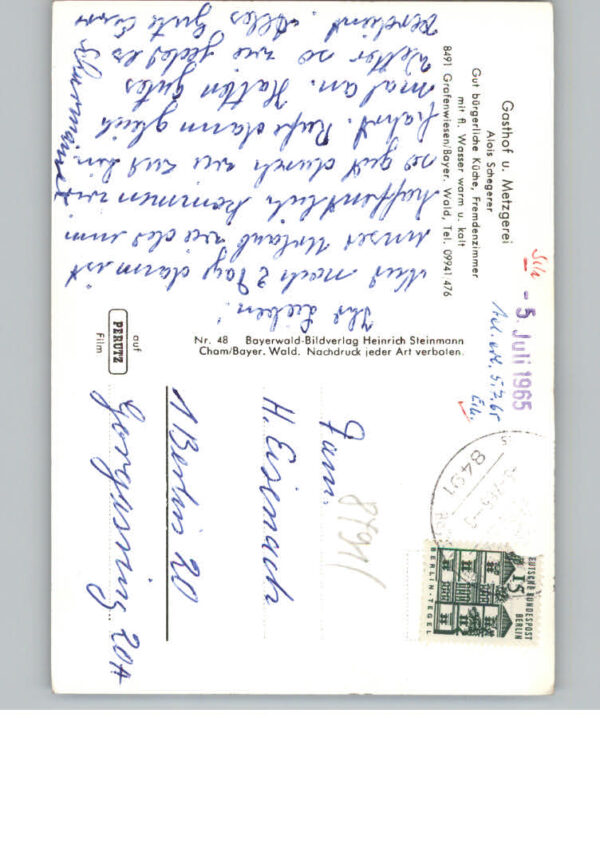 Gasthof u. Metzgerei
Alois Schegerer
Gut bürgerliche Küche, Fremdenzimmer
mit fl. Wasser warm u. kalt
8491 Grafenwiesen/Bayer. Wald, Tel. 09941 476
- 5. Juli 1965
Ihr Lieben!
Nur noch 2 Tag dann ist
unser Urlaub wieder um
hoffentlich kommen wir
so gut durch wie zur hin
fahrt. Rufe dann gleich
mal an. Hatten gutes
Wetter so wie jeder es
verdient. Alles Gute Eure
Nr. 48 Bayerwald-Bildverlag Heinrich Steinmann
Cham/Bayer. Wald. Nachdruck jeder Art verboten.
auf
PERUTZ
Film
8491
15
DEUTSCHE BUNDESPOST
BERLIN
BERLIN-TEGEL
Fam.
8491/
H. Eisenach
1 Berlin 20
20A